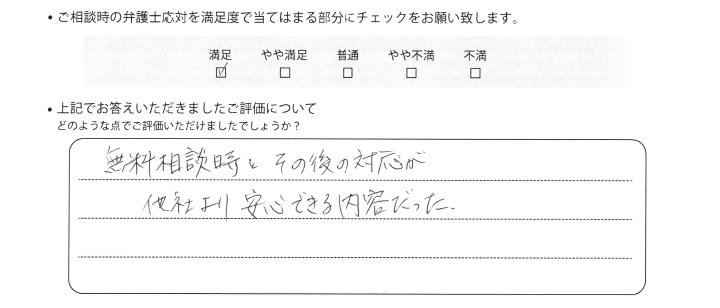 • ご相談時の弁護士応対を満足度で当てはまる部分にチェックをお願い致します。
満足 やや満足 普通 やや不満 不満
☑ □ □ □ □
• 上記でお答えいただきましたご評価について
どのような点でご評価いただけましたでしょうか？
無料相談時と その後の対応が
他社より 安心できる内容だった.